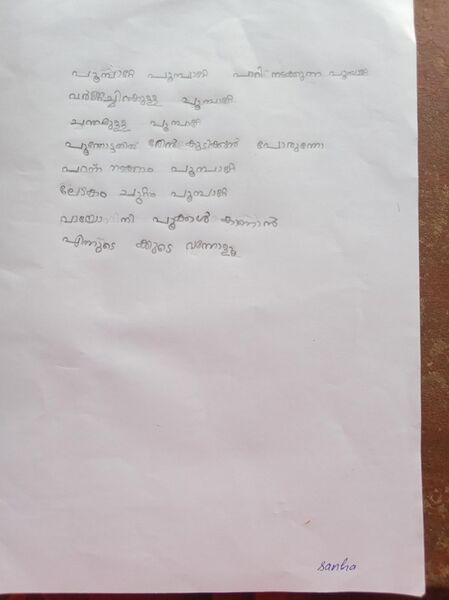 പൂമ്പാറ്റ പൂമ്പാറ്റ പാറി നടക്കുന്ന പൂമ്പാറ്റ
വർണ്ണച്ചിറകുള്ള പൂമ്പാറ്റ
ചന്തമുള്ള പൂമ്പാറ്റ
പൂന്തോട്ടത്തിൽ തേൻ കുടിക്കാൻ പോരുന്നോ
പറന്ന് നടക്കാം പൂമ്പാറ്റ
ലോകം ചുറ്റും പൂമ്പാറ്റ
വായോ നീ പൂക്കൾ കാണാൻ
എന്നുടെ ക്കുടെ വന്നോളൂ
sanha